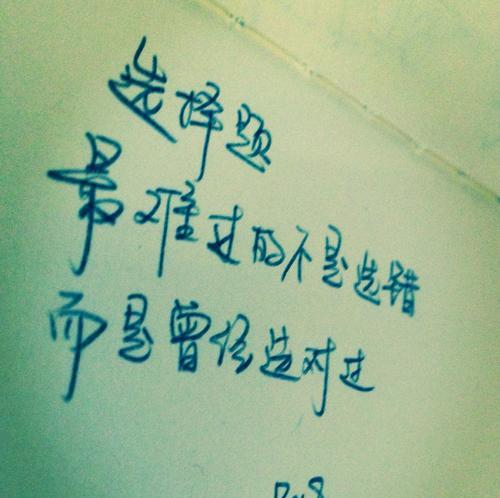 选择题
最难过的不是选错
而是曾经选对过